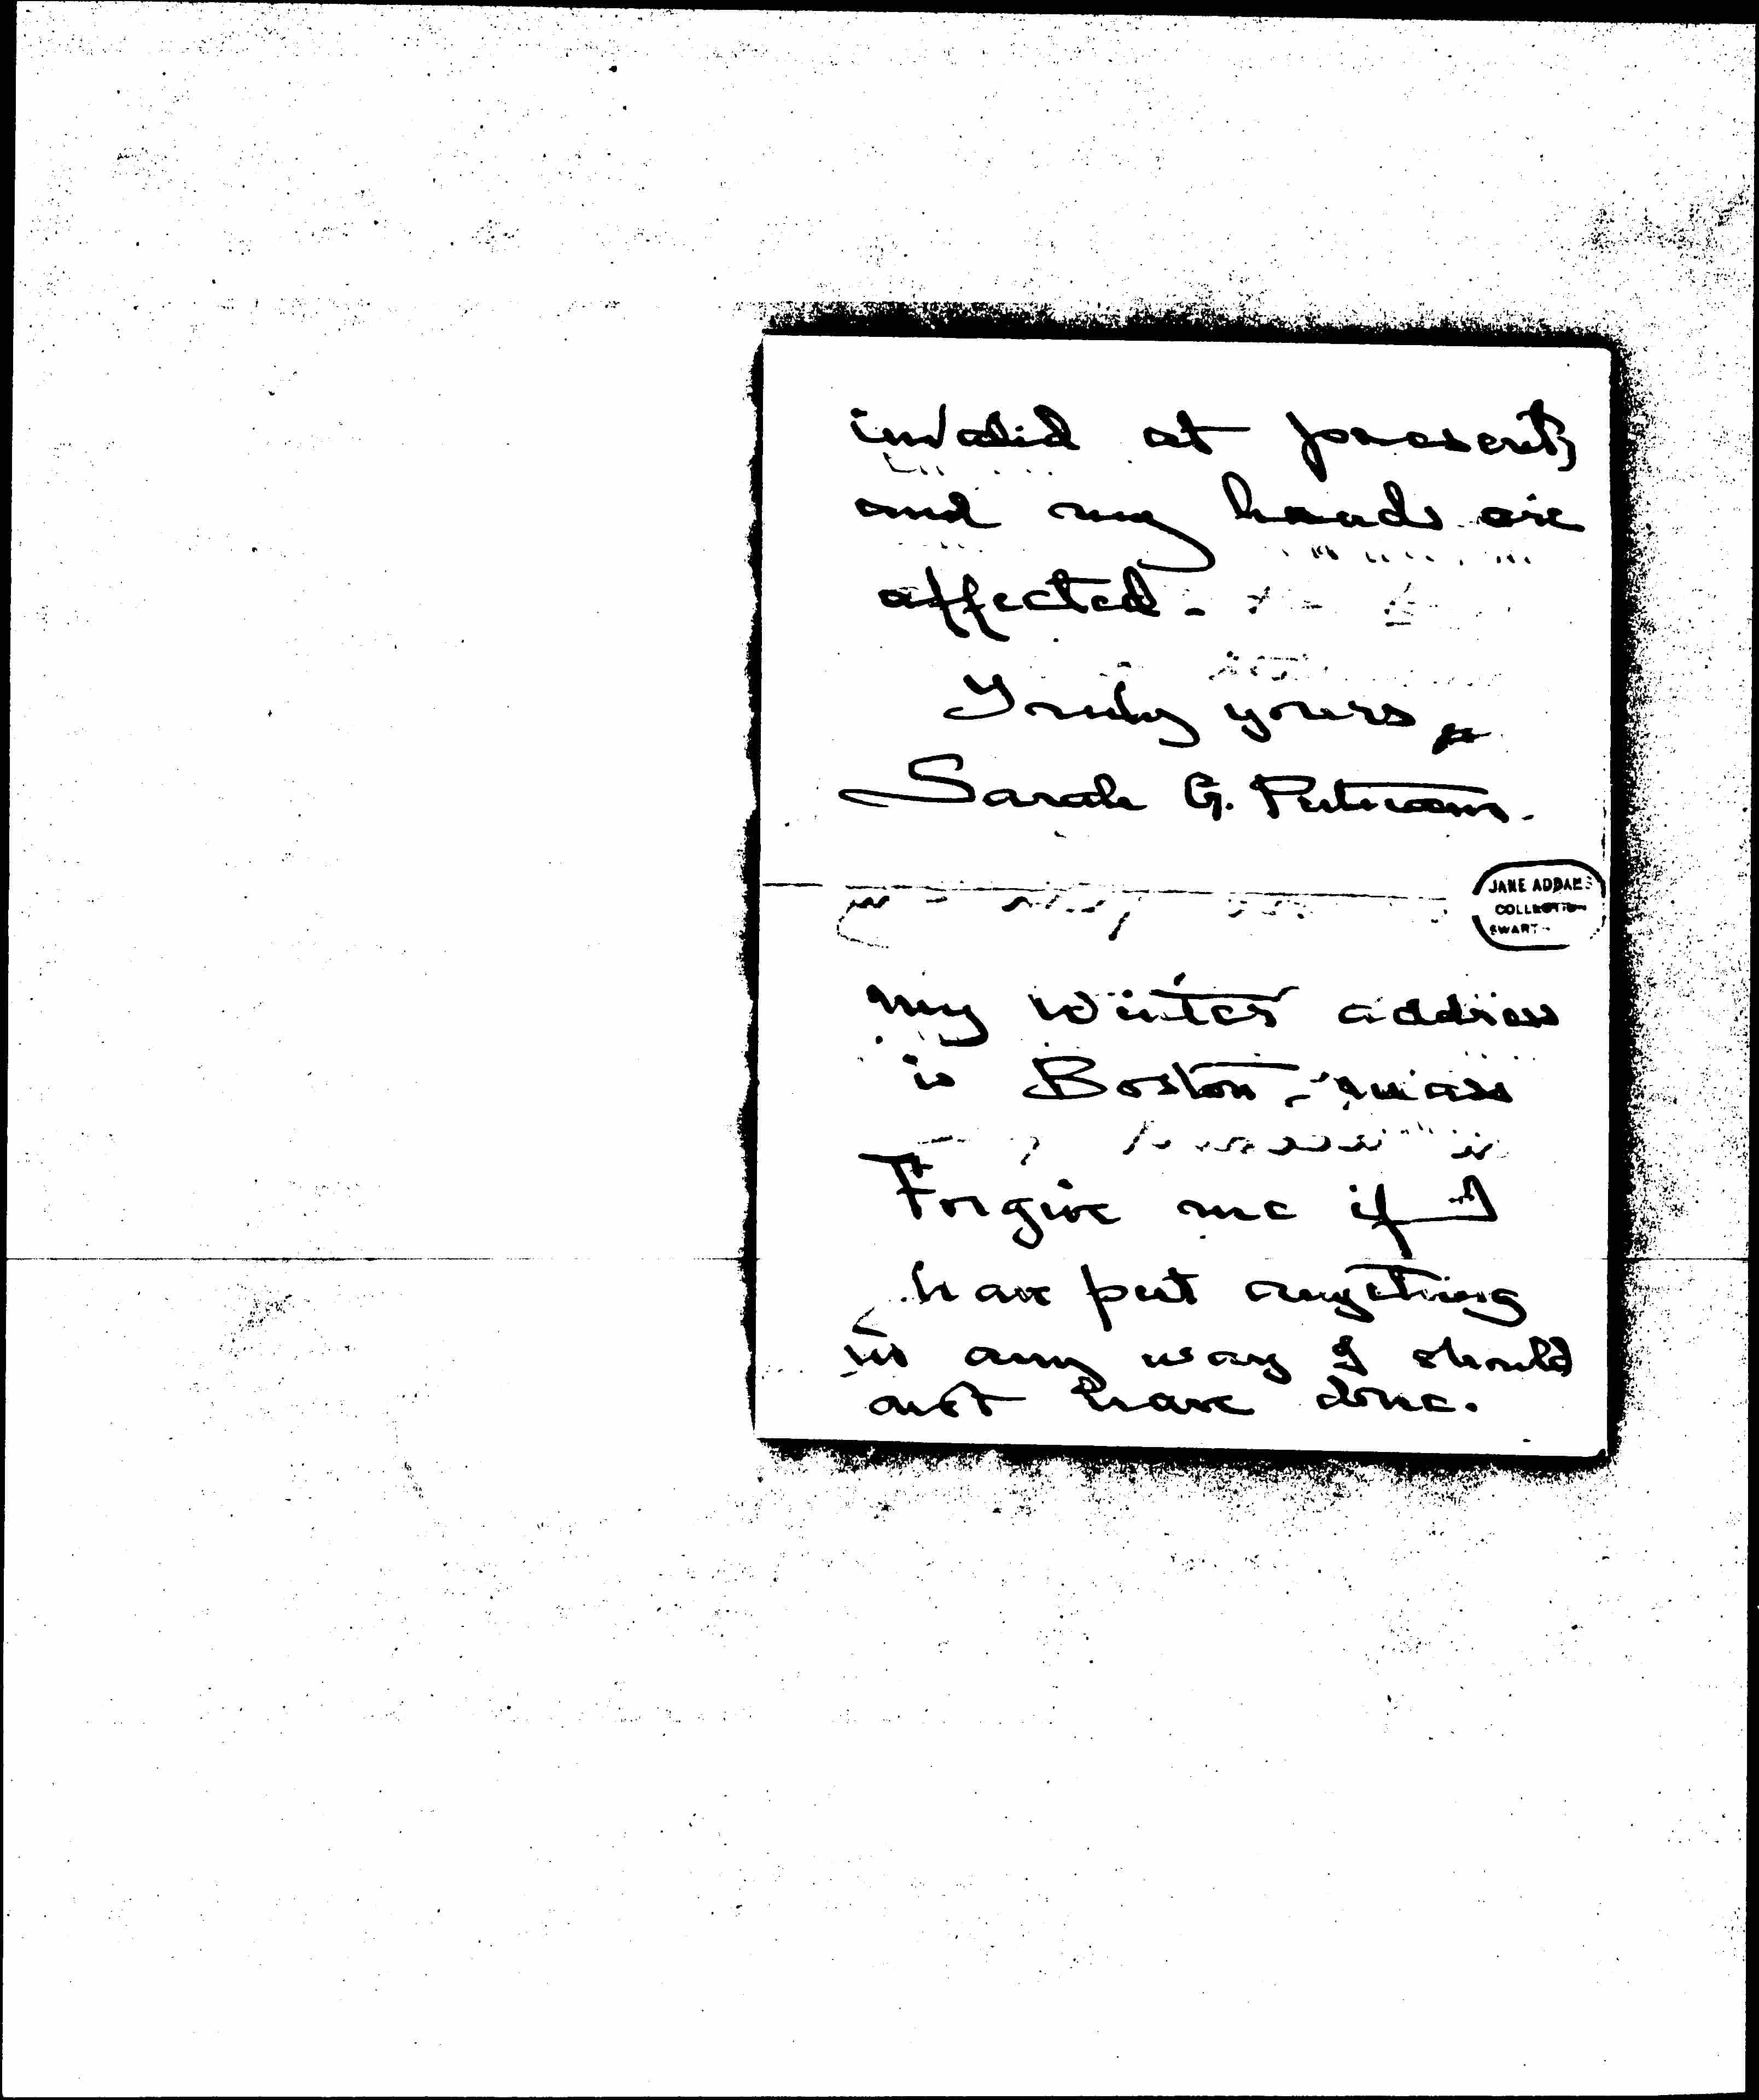 invalid at present,
and my hands are
affected.
Truly yours,
Sarah G. Putnam.
JANE ADDAMS
COLLECTION
SWART
my winter address
is Boston, Mass
Forgive me if I
have put anything
in any way I should
not have done.